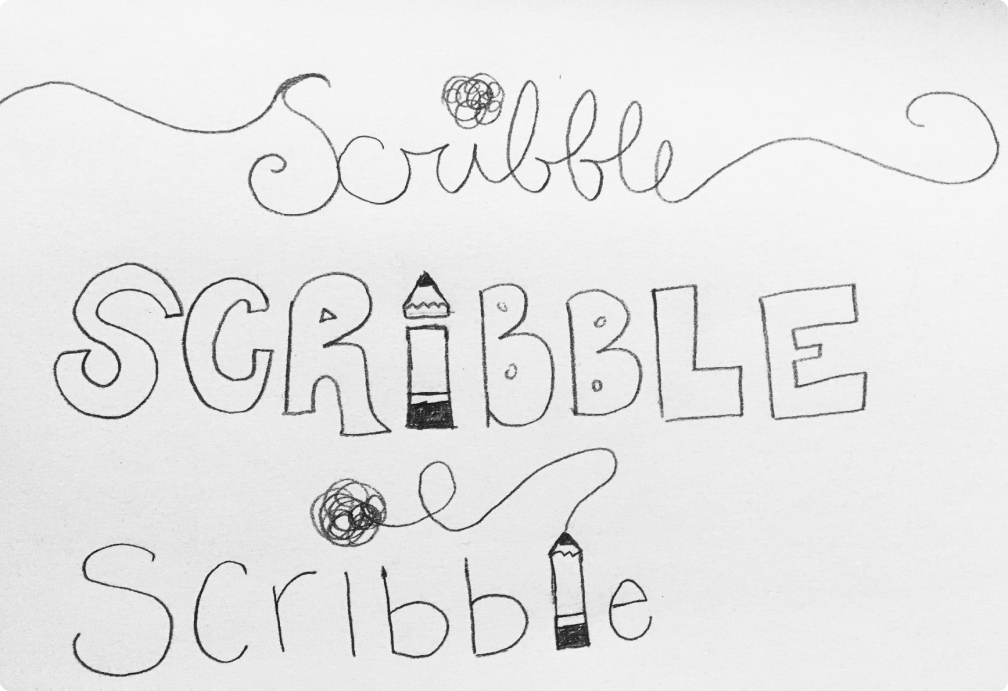 Scribble
SCRiBBLE
Scribble